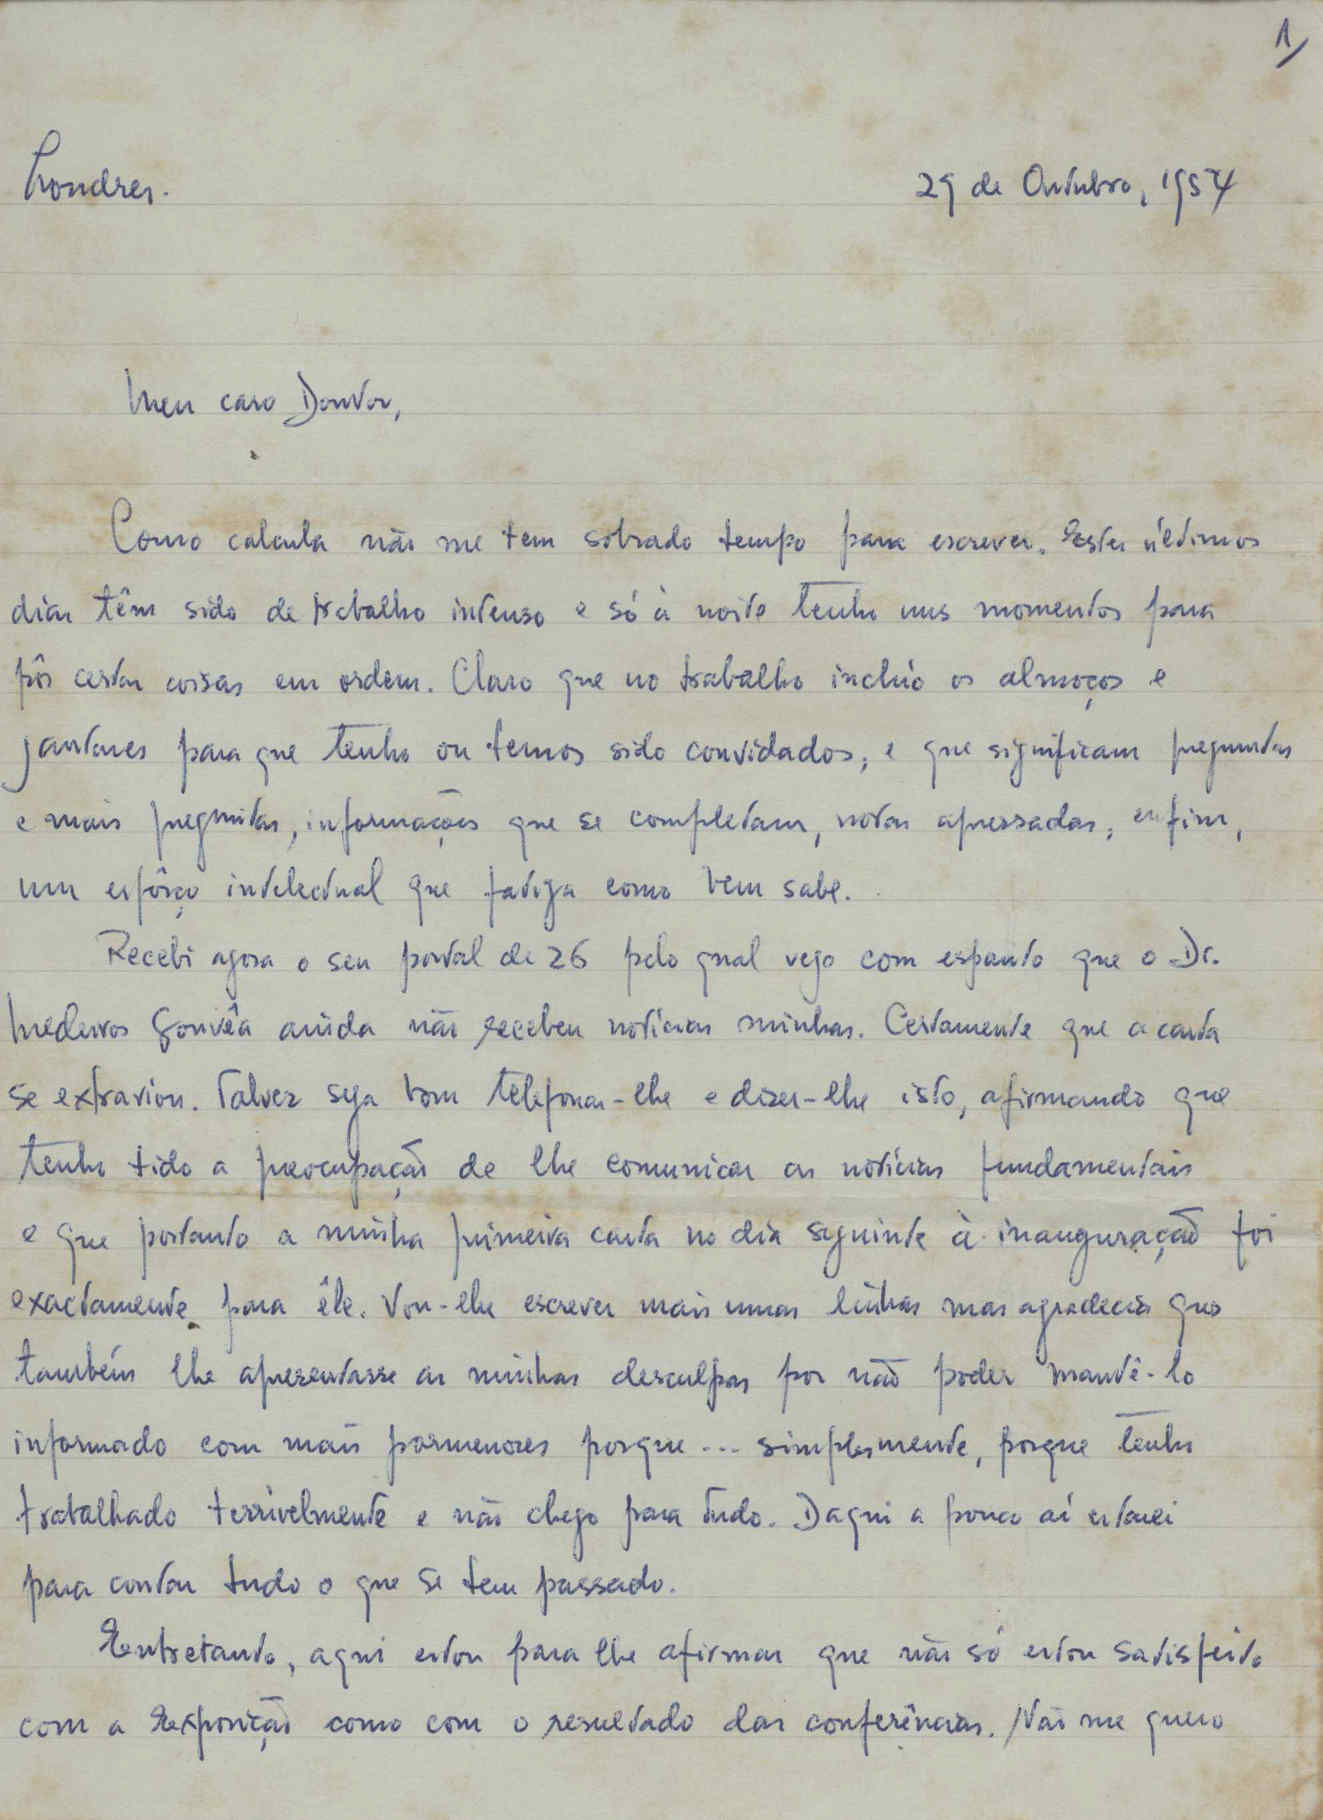 1/
Londres.
29 de Outubro, 1954
Meu caro Doutor,
Como calcula não me tem sobrado tempo para escrever. Estes últimos
dias têm sido de trabalho intenso e só à noite tenho uns momentos para
pôr certas coisas em ordem. Claro que no trabalho inclúo os almoços e
jantares para que tenho ou temos sido convidados, e que significam preguntas
e mais preguntas, informações que se completam, notas apressadas, enfim,
um esfôrço intelectual que fatiga como bem sabe.
Recebi agora o seu postal de 26 pelo qual vejo com espanto que o Dr.
Medeiros Gouvêa ainda não recebeu notícias minhas. Certamente que a carta
se extraviou. Talvez seja bom telefonar-lhe e dizer-lhe isto, afirmando que
tenho tido a preocupação de lhe comunicar as notícias fundamentais
e que portanto a minha primeira carta no dia seguinte à inauguração foi
exactamente para êle. Vou-lhe escrever mais umas linhas mas agradecia que
também lhe apresentasse as minhas desculpas por não poder mantê-lo
informado com mais pormenores porque... simplesmente, porque tenho
trabalhado terrívelmente e não chego para tudo. Daqui a pouco aí estarei
para contar tudo o que se tem passado.
Entretanto, aqui estou para lhe afirmar que não só estou satisfeito
com a Exposição como com o resultado das conferências. Não me quero